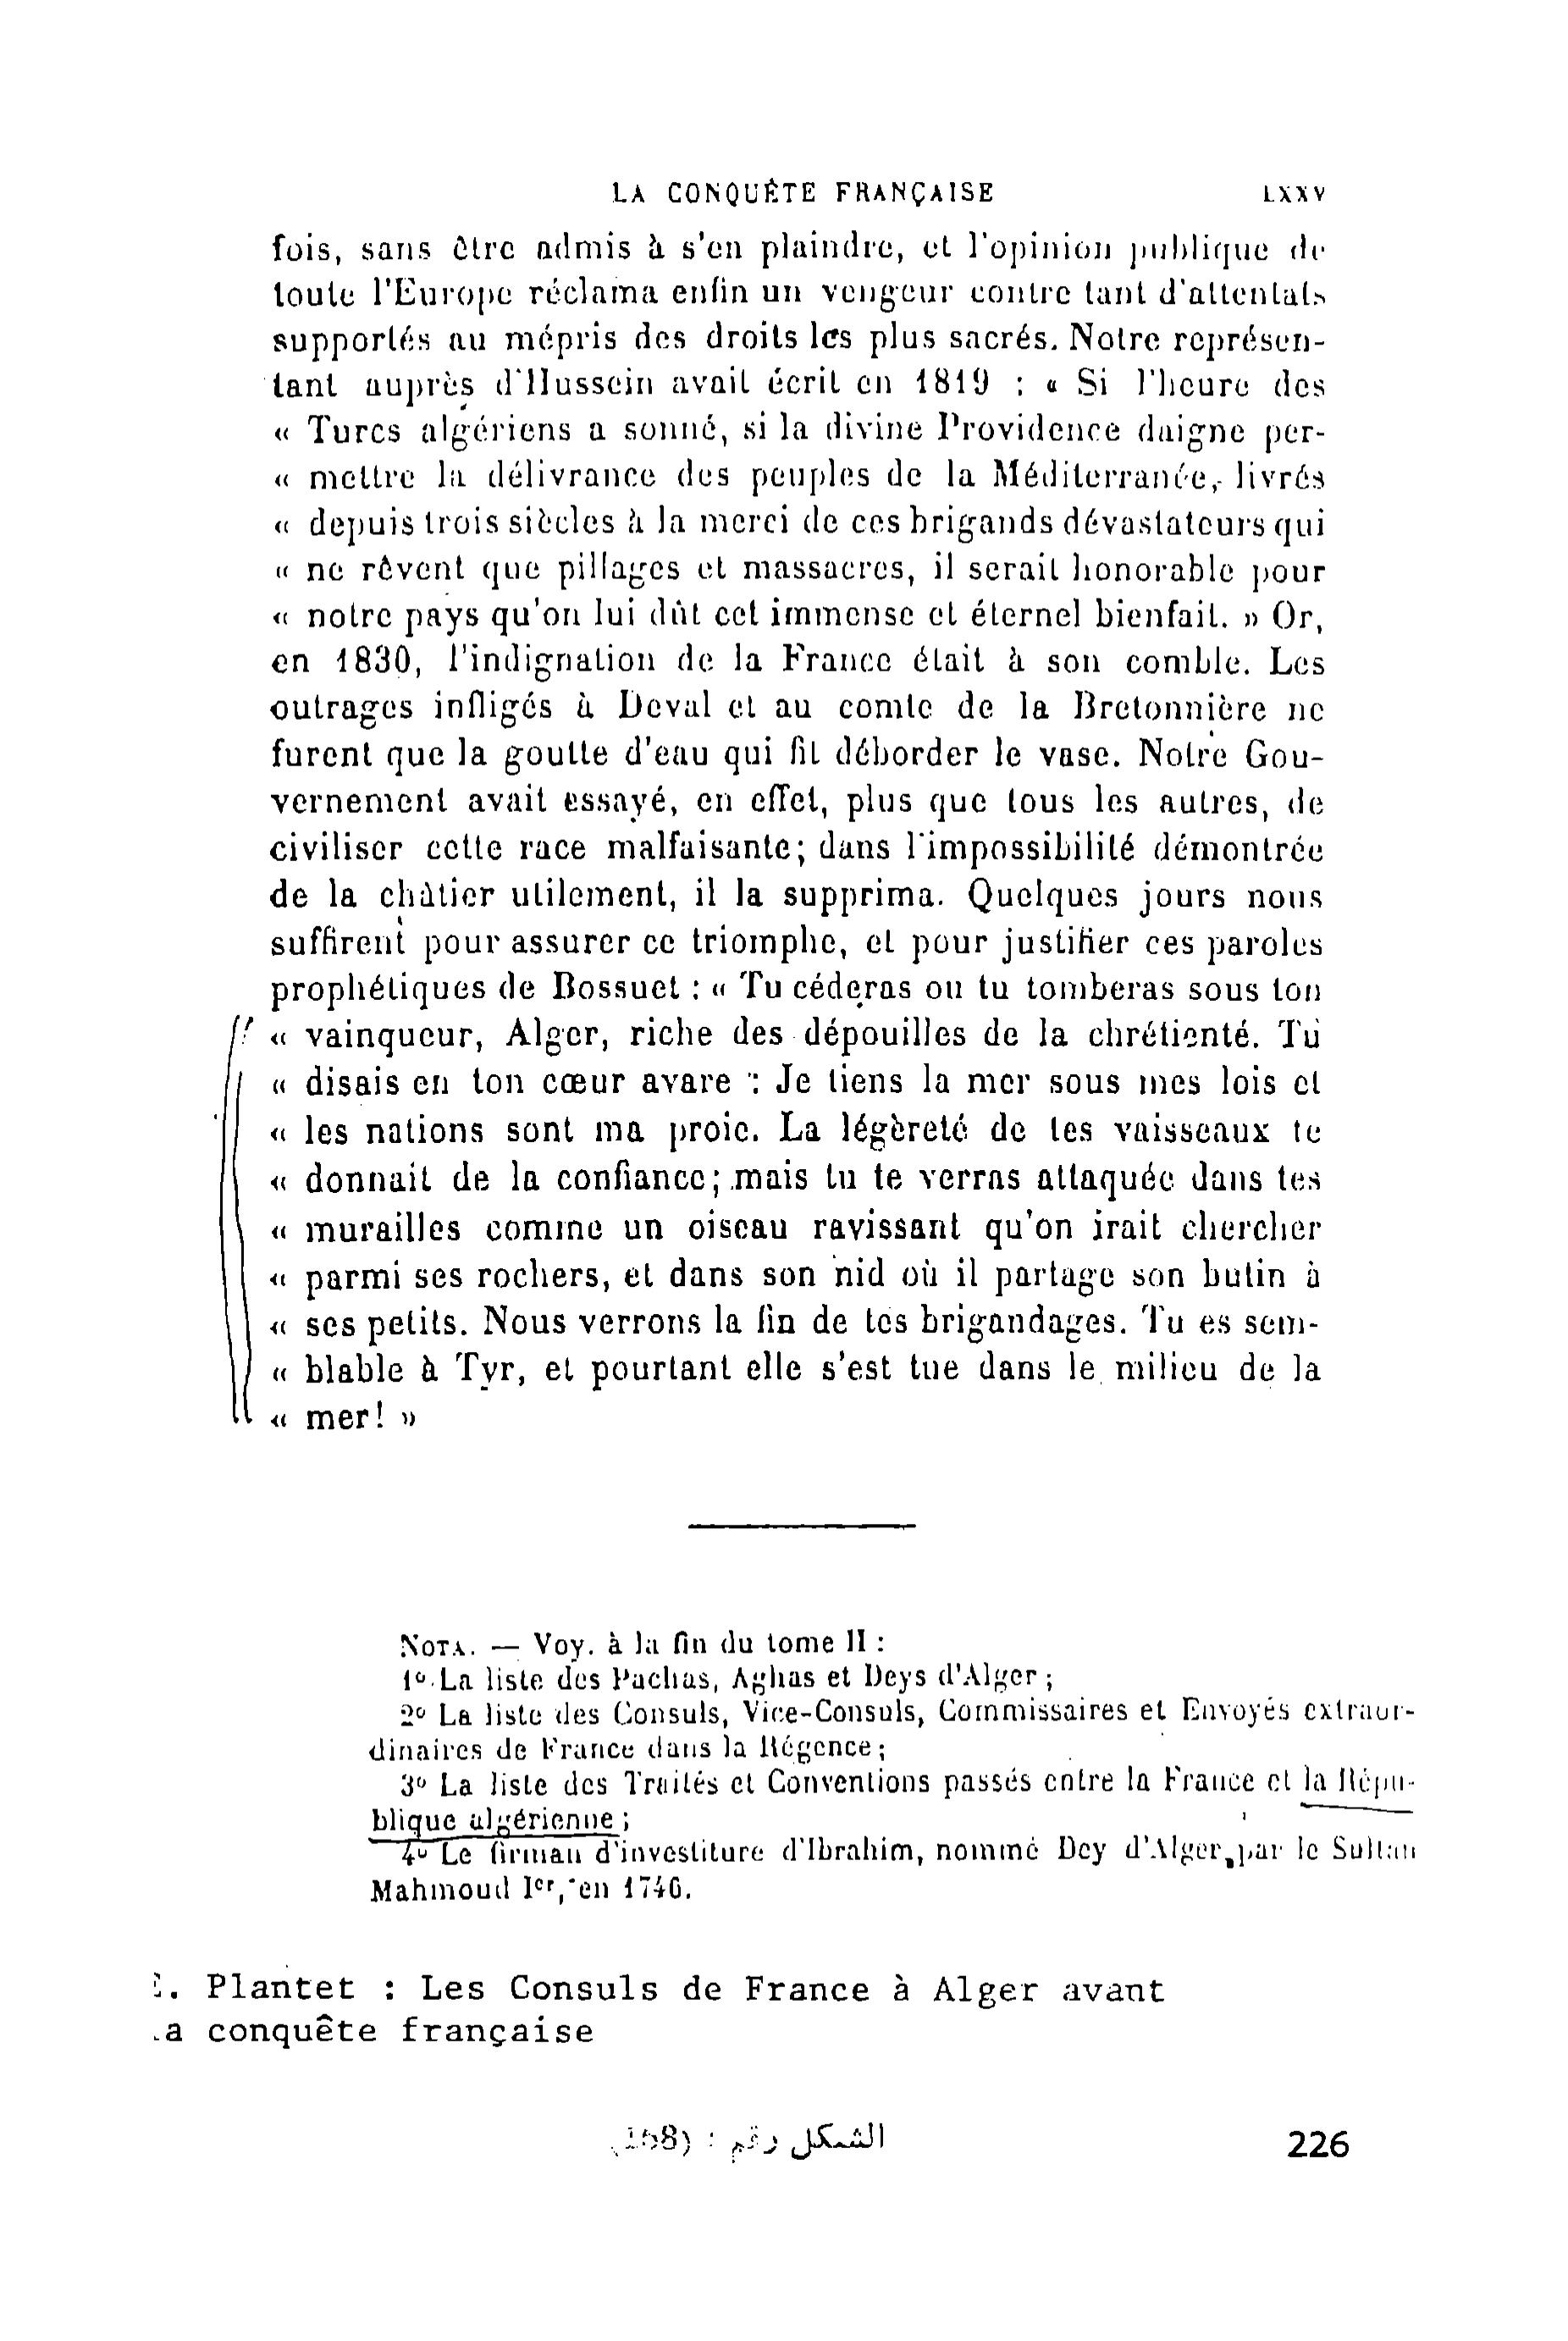 LA CONQUÊTE FRANÇAISE LXXV
fois, sans être admis à s'en plaindre, et l'opinion publique de
toute l'Europe réclama enfin un vengeur contre tant d'attentats
supportés au mépris des droits les plus sacrés. Notre représen-
tant auprès d'Hussein avait écrit en 1819 : « Si l'heure des
« Turcs algériens a sonné, si la divine Providence daigne per-
« mettre la délivrance des peuples de la Méditerranée, livrés
« depuis trois siècles à la merci de ces brigands dévastateurs qui
« ne rêvent que pillages et massacres, il serait honorable pour
« notre pays qu'on lui dût cet immense et éternel bienfait. » Or,
en 1830, l'indignation de la France était à son comble. Les
outrages infligés à Deval et au comte de la Bretonnière ne
furent que la goutte d'eau qui fit déborder le vase. Notre Gou-
vernement avait essayé, en effet, plus que tous les autres, de
civiliser cette race malfaisante; dans l'impossibilité démontrée
de la châtier utilement, il la supprima. Quelques jours nous
suffirent pour assurer ce triomphe, et pour justifier ces paroles
prophétiques de Bossuet : « Tu céderas ou tu tomberas sous ton
« vainqueur, Alger, riche des dépouilles de la chrétienté. Tu
« disais en ton cœur avare : Je tiens la mer sous mes lois et
« les nations sont ma proie. La légèreté de tes vaisseaux te
« donnait de la confiance; mais tu te verras attaquée dans tes
« murailles comme un oiseau ravissant qu'on irait chercher
« parmi ses rochers, et dans son nid où il partage son butin à
« ses petits. Nous verrons la fin de tes brigandages. Tu es sem-
« blable à Tyr, et pourtant elle s'est tue dans le milieu de la
« mer! »
NOTA. — Voy. à la fin du tome II :
1º La liste des Pachas, Aghas et Deys d'Alger ;
2º La liste des Consuls, Vice-Consuls, Commissaires et Envoyés extraor-
dinaires de France dans la Régence ;
3º La liste des Traités et Conventions passés entre la France et la Répu-
blique algérienne ;
4º Le firman d'investiture d'Ibrahim, nommé Dey d'Alger par le Sultan
Mahmoud Iᵉʳ, en 1746.
E. Plantet : Les Consuls de France à Alger avant
la conquête française
الشكل رقم : (168)
226